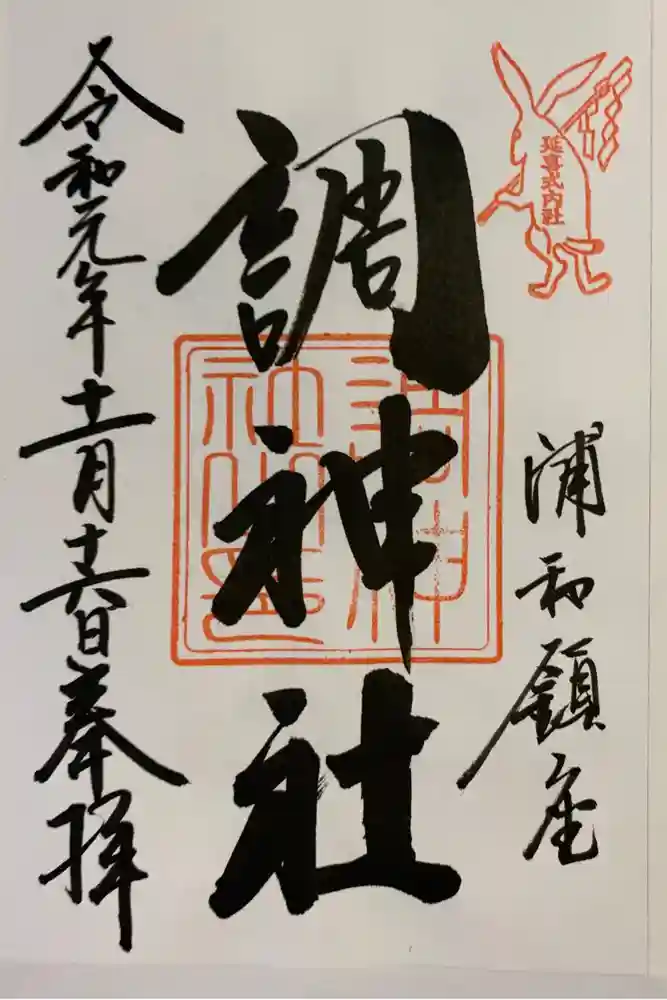 延喜式内社
浦和鎮座
調神社
調神
社之印
令和元年十一月十六日奉拝